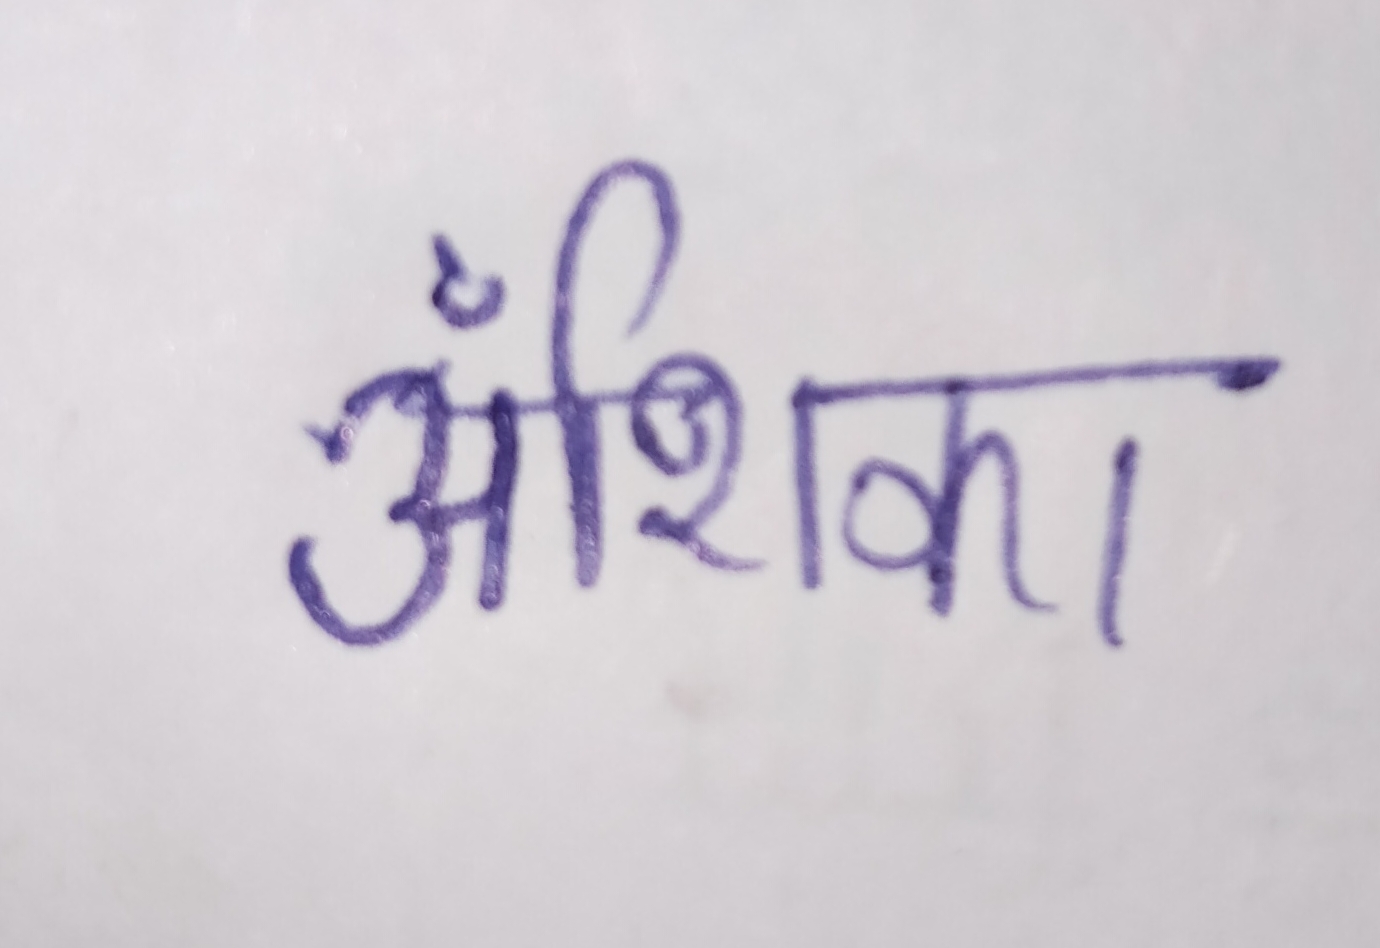 अँशिका